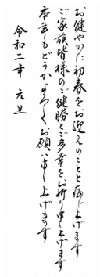 お健やかに初春をお迎えのことと存じ上げます
ご家族皆様のご健勝とご多幸をお祈り申し上げます
本年もどうかよろしくお願い申し上げます
令和二年 元旦